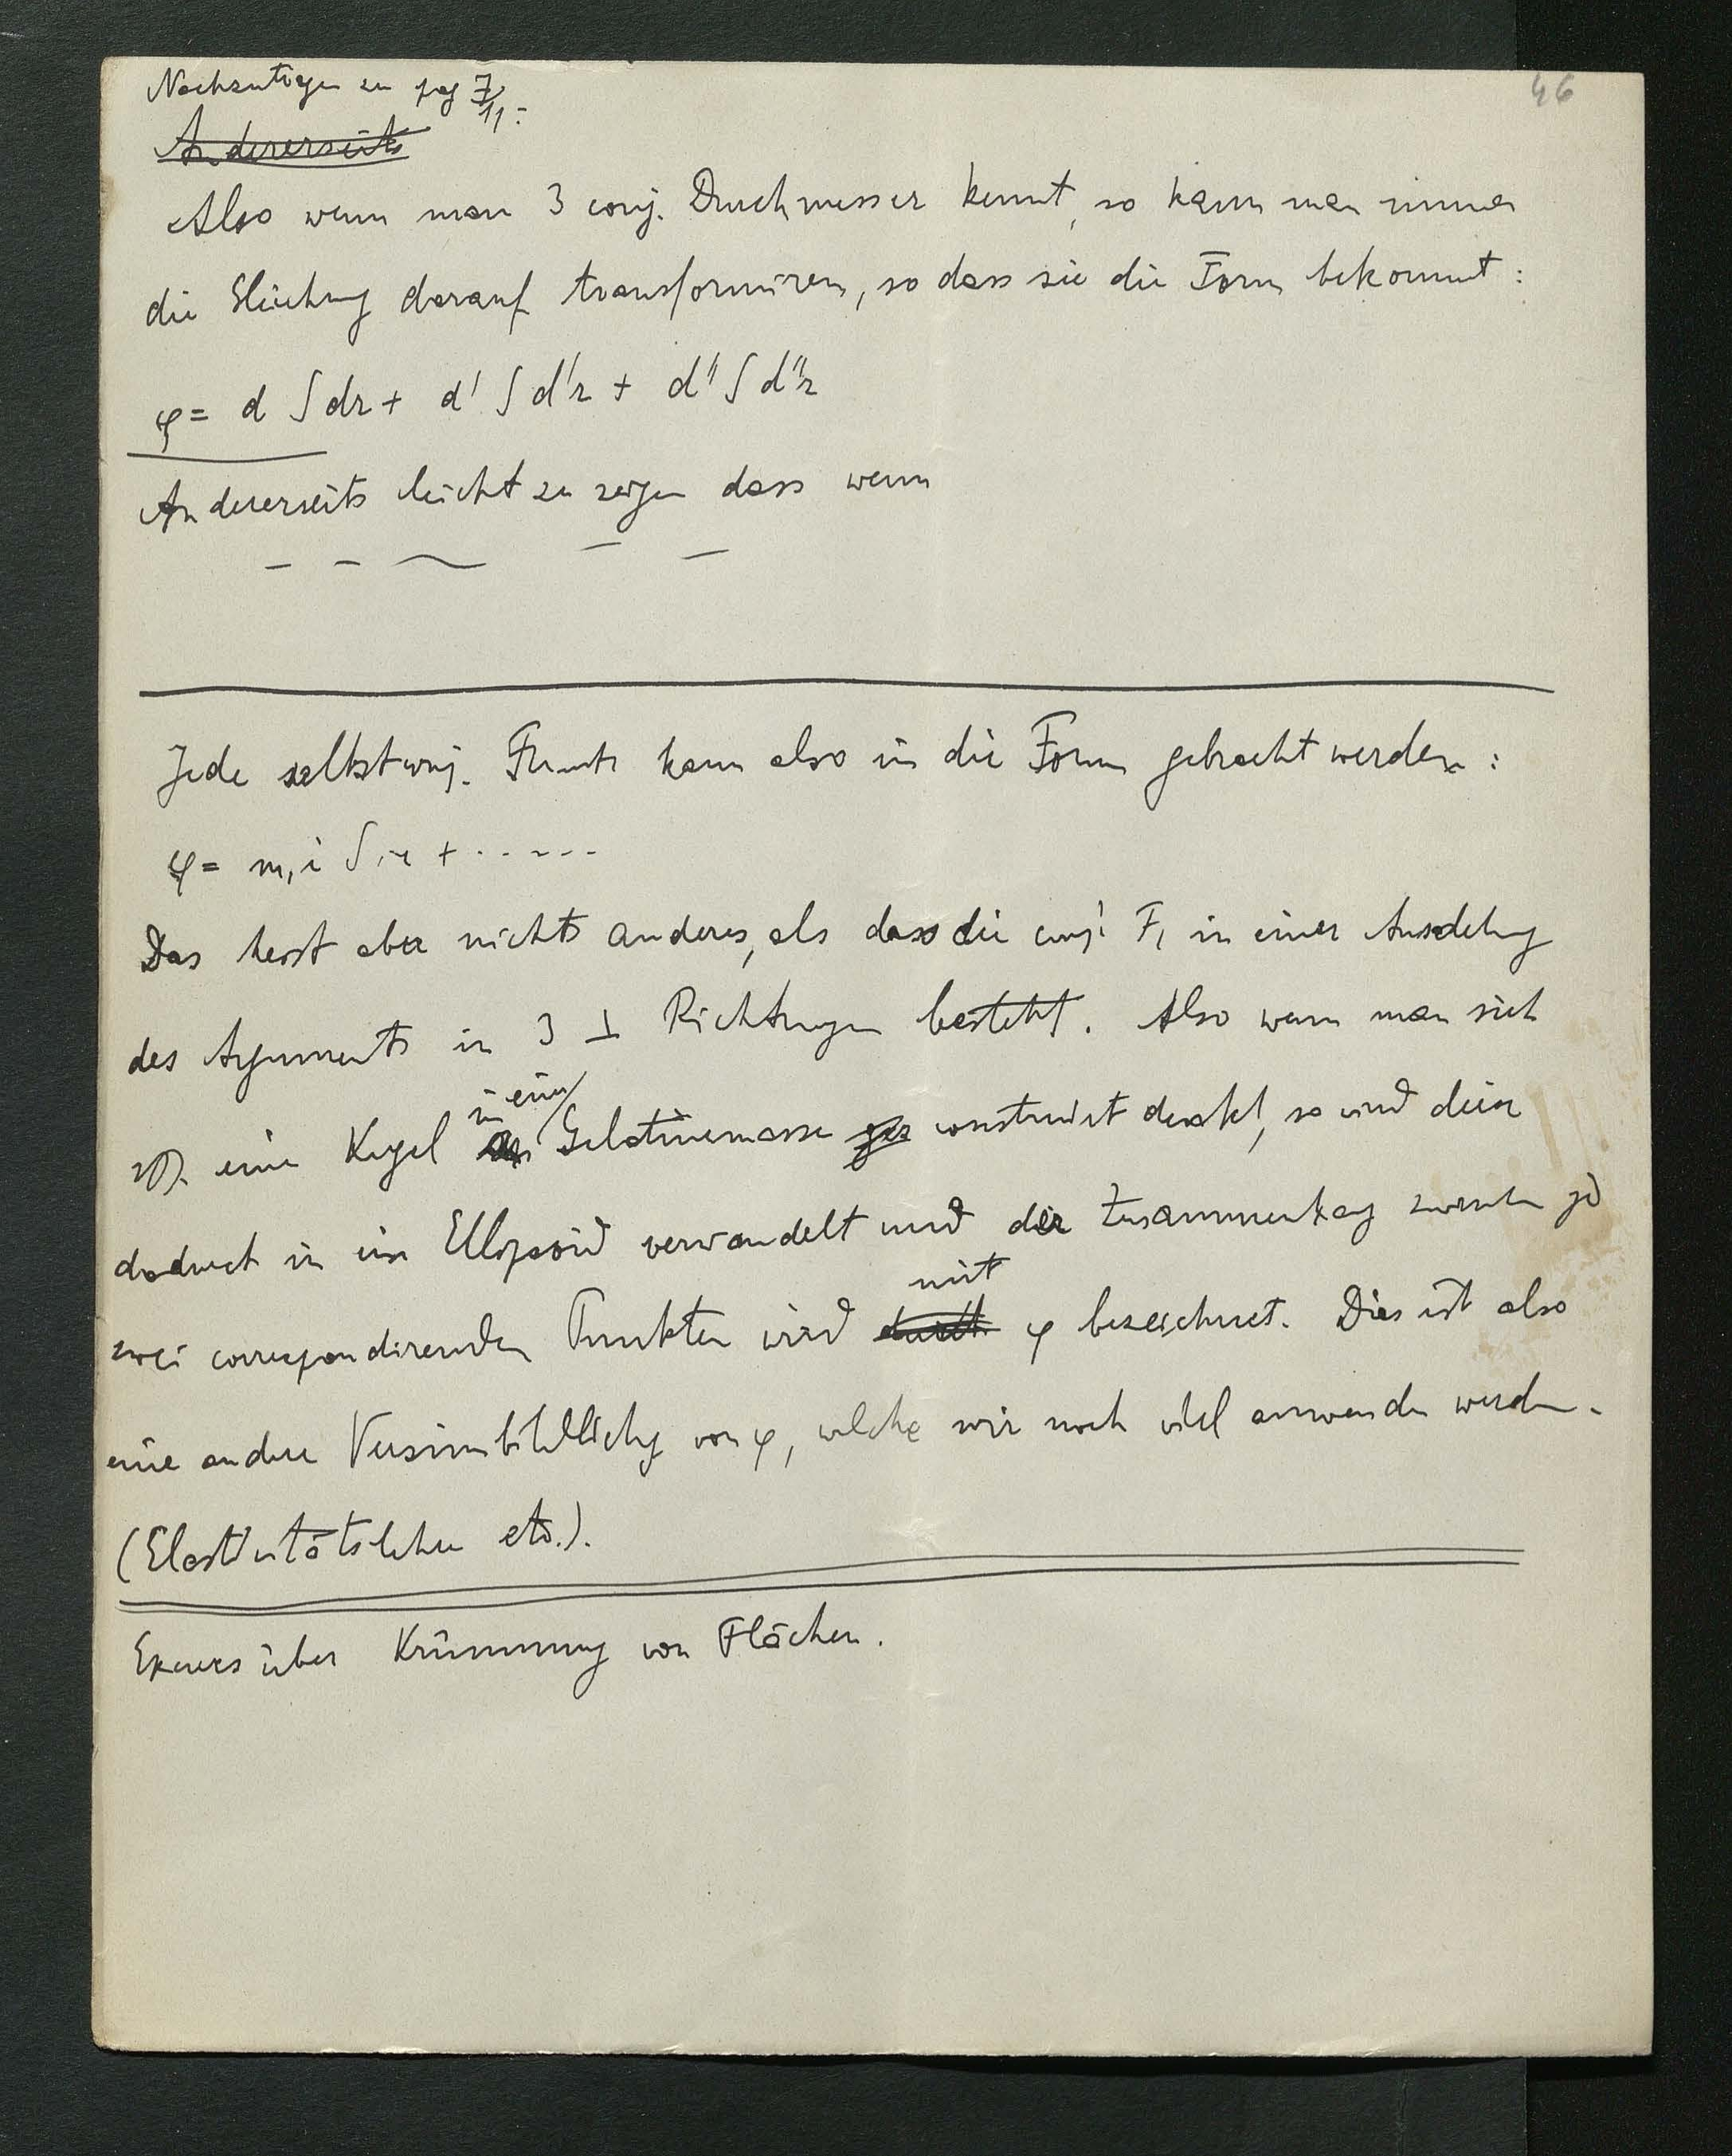 46
Nachzutragen zu pag 7/11:
Andererseits
Also wenn man 3 conj. Durchmesser kennt, so kann man immer
die Gleichung darauf transformiren, so dass sie die Form bekommt:
φ = d ∫ dr + d' ∫ d'r + d'' ∫ d''r
Andererseits leicht zu zeigen dass wenn
— — ~ — —
Jede selbstconj. Funkt. kann also in die Form gebracht werden:
φ = m, i ∫ ir + . . . . . .
Das heisst aber nichts anderes, als dass die conj. F, in einer Ausdehnung
des Arguments in 3 ⊥ Richtungen besteht. Also wenn man sich
zB. eine Kugel in einer Gelatinemasse construirt denkt, so wird diese
dadurch in ein Ellipsoid verwandelt und der Zusammenhang zwischen je
zwei correspondirenden Punkten wird durch mit φ bezeichnet. Dies ist also
eine andere Versinnbildlichung von φ, welche wir noch viel anwenden werden.
(Elasticitätslehre etc.).
Excurs über Krümmung von Flächen.